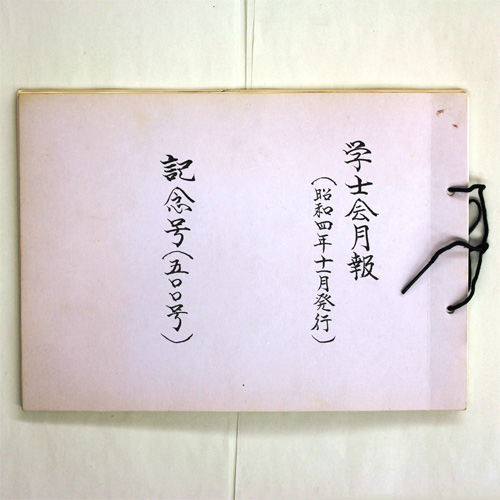 学士会月報
(昭和四年十一月発行)
記念号(五〇〇号)